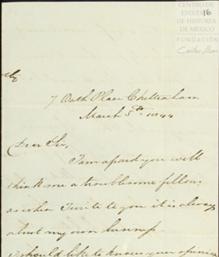 CENTRO DE
ESTUDIOS
DE HISTORIA
DE MÉXICO
FUNDACIÓN
Carlos Slim
16
7 Bath Place Cheltenham
March 5th 1844
Dear Sir,
I am afraid you will
think me a troublesome fellow,
as when I write to you it is always
about my own
I should like to know your opinion